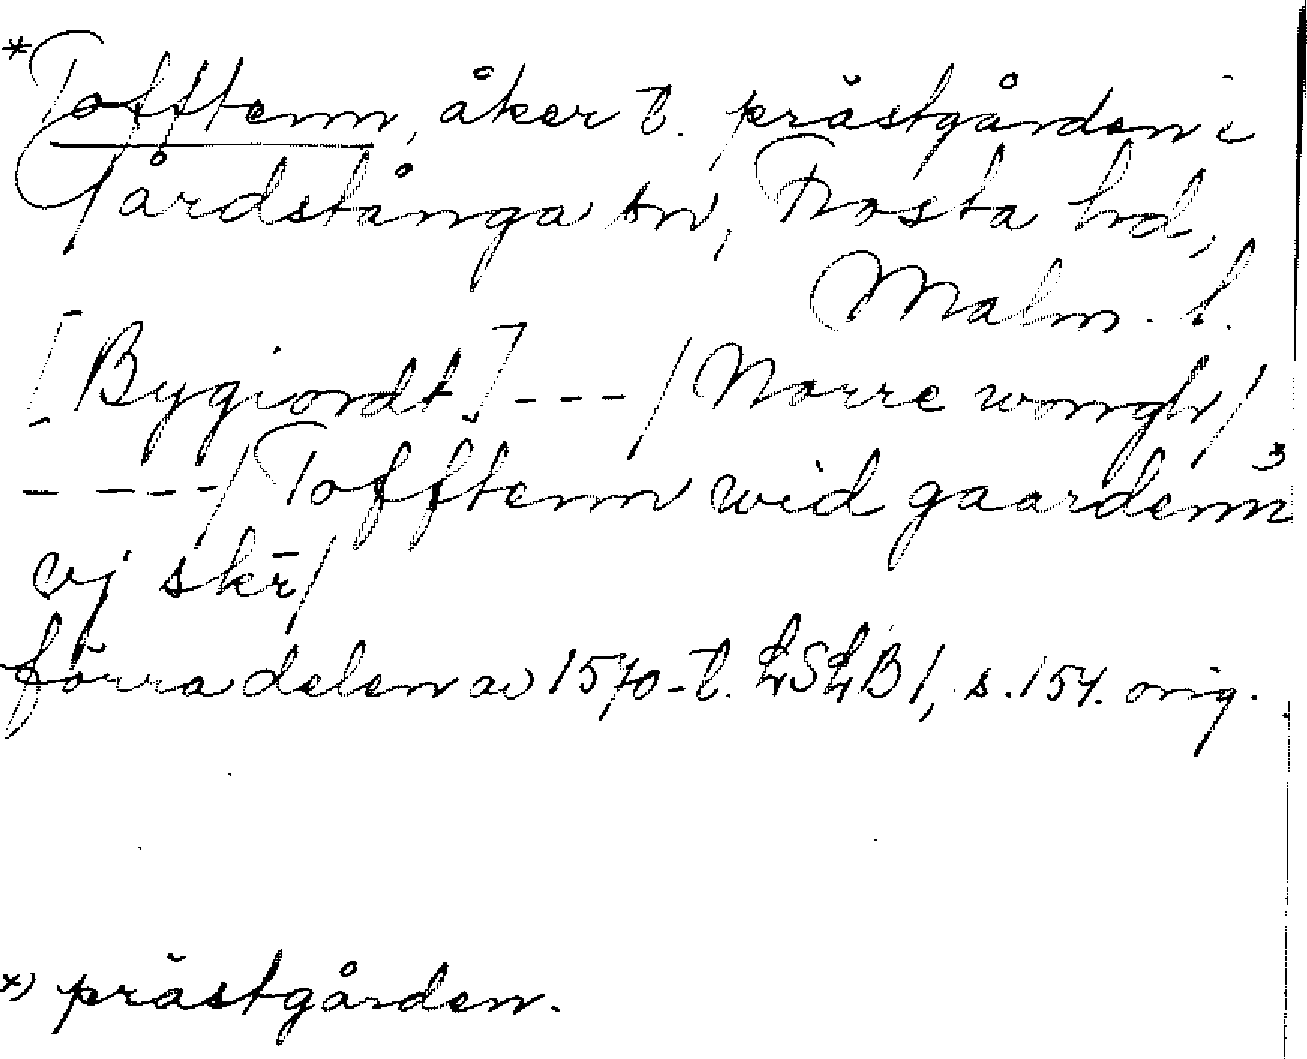 *Tofftenn, åker t. prästgården i
Gårdstånga sn, Frosta hd,
Malm. l.
[Bygiordt] --- / Norre wongh /
- --- / Tofftenn wid gaardenn
vj skr̄ /
förra delen av 1570-t. LSLB 1, s. 154. orig.
*) prästgården.